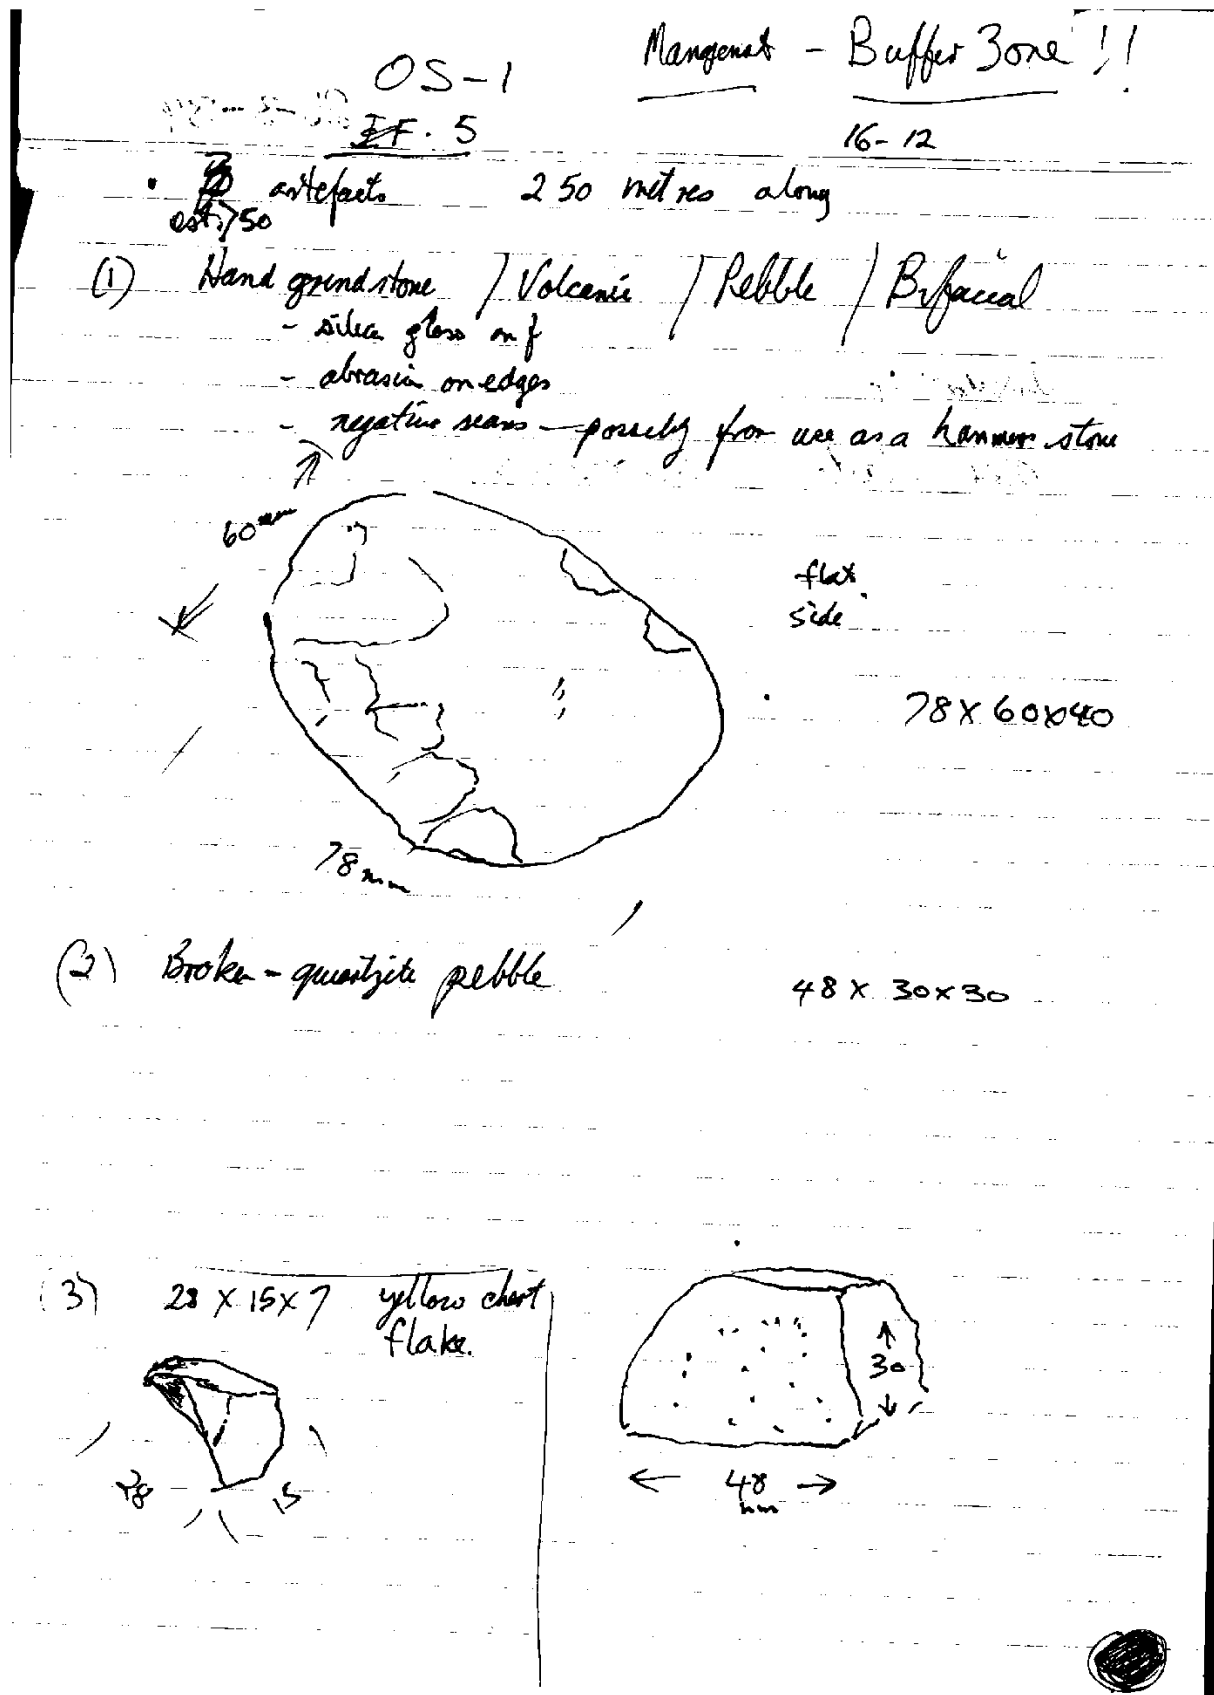 Mangenat - Buffer Zone !!
OS-1
IF. 5
16-12
artefacts 250 metres along
est. >50
(1) Hand grindstone / Volcanic / Pebble / Bifacial
- silica gloss on f
- abrasion on edges
- negative scars - possibly from use as a hammer stone
60mm
flat
side
78 x 60x40
78mm
(2) Broken - quartzite pebble 48 x 30x30
(3) 28 x 15x7 yellow chert
flake.
30
28 15
48
mm